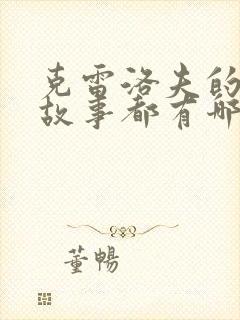 克雷洛夫的
故事都有哪
董暢